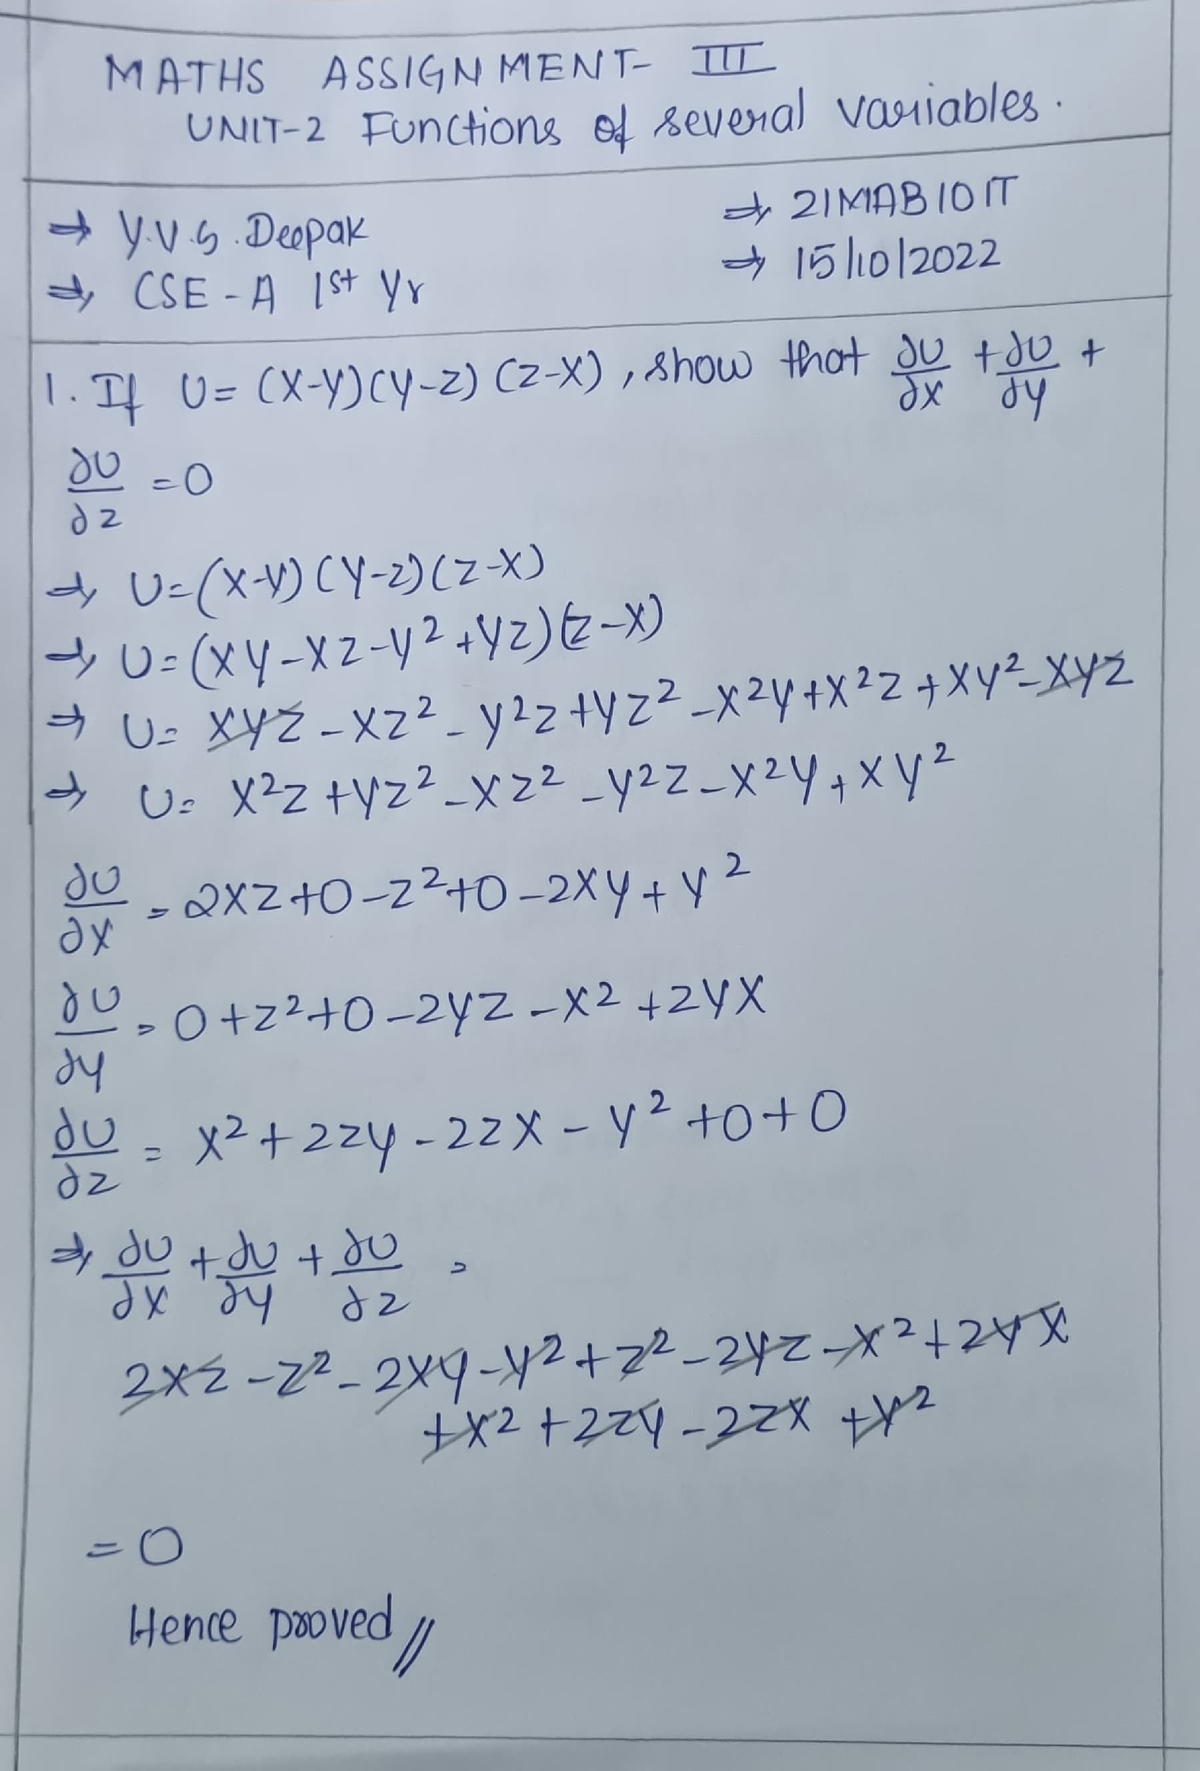 MATHS ASSIGNMENT- III
UNIT-2 Functions of several variables.
⇒ Y.V.S. Deepak
⇒ 21MAB101T
⇒ CSE-A 1st Yr
⇒ 15/10/2022
1. If U= (X-Y)(Y-Z)(Z-X), show that ∂U/∂X + ∂U/∂Y +
∂U/∂Z =0
⇒ U=(X-Y)(Y-Z)(Z-X)
⇒ U=(XY-XZ-Y²+YZ)(Z-X)
⇒ U= XYZ-XZ²-Y²Z+YZ²-X²Y+X²Z+XY²-XYZ
⇒ U= X²Z+YZ²-XZ²-Y²Z-X²Y+XY²
∂U/∂X = 2XZ+0-Z²+0-2XY+Y²
∂U/∂Y = 0+Z²+0-2YZ-X²+2YX
∂U/∂Z = X²+2ZY-2ZX-Y²+0+0
⇒ ∂U/∂X + ∂U/∂Y + ∂U/∂Z =
2XZ-Z²-2XY-Y²+Z²-2YZ-X²+2YX
+X²+2ZY-2ZX+Y²
=0
Hence proved//